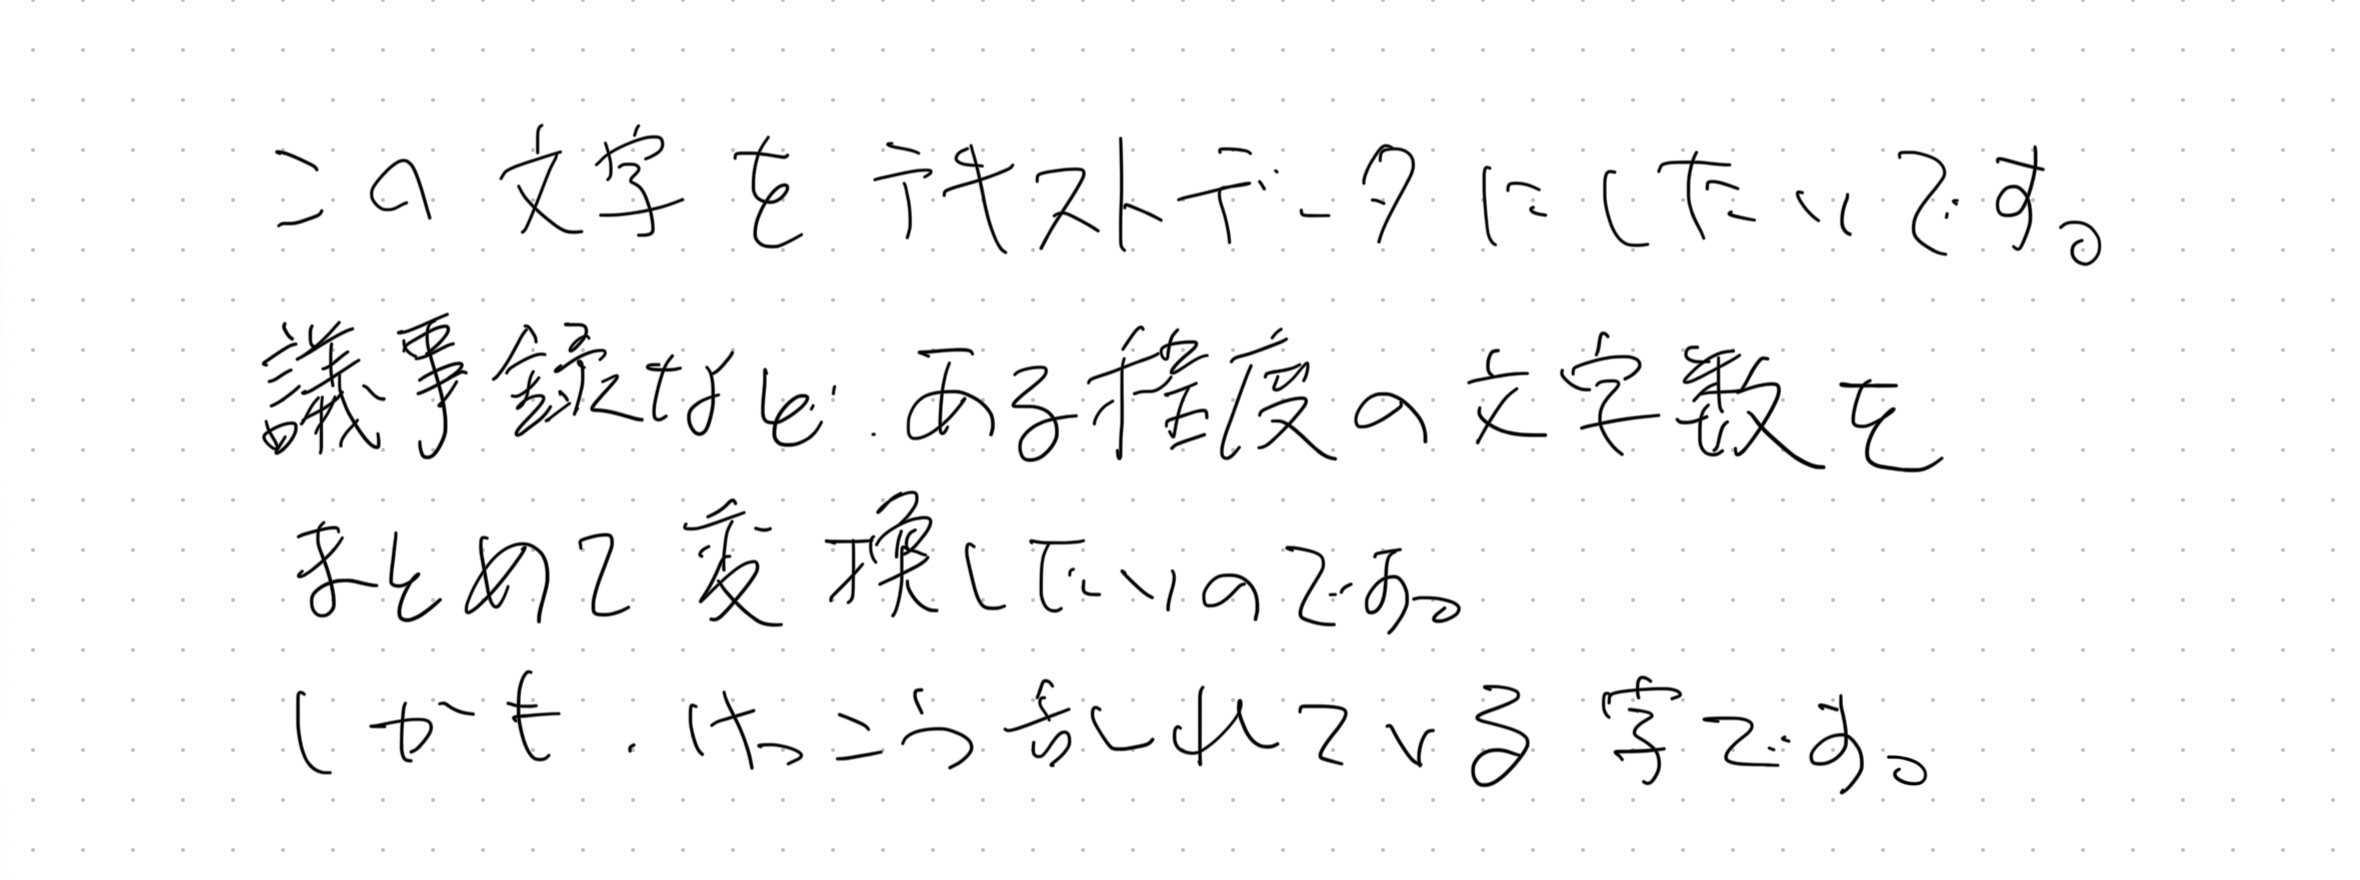 この文字をテキストデータにしたいです。
議事録など、ある程度の文字数を
まとめて変換したいのです。
しかも、けっこう乱れている字です。